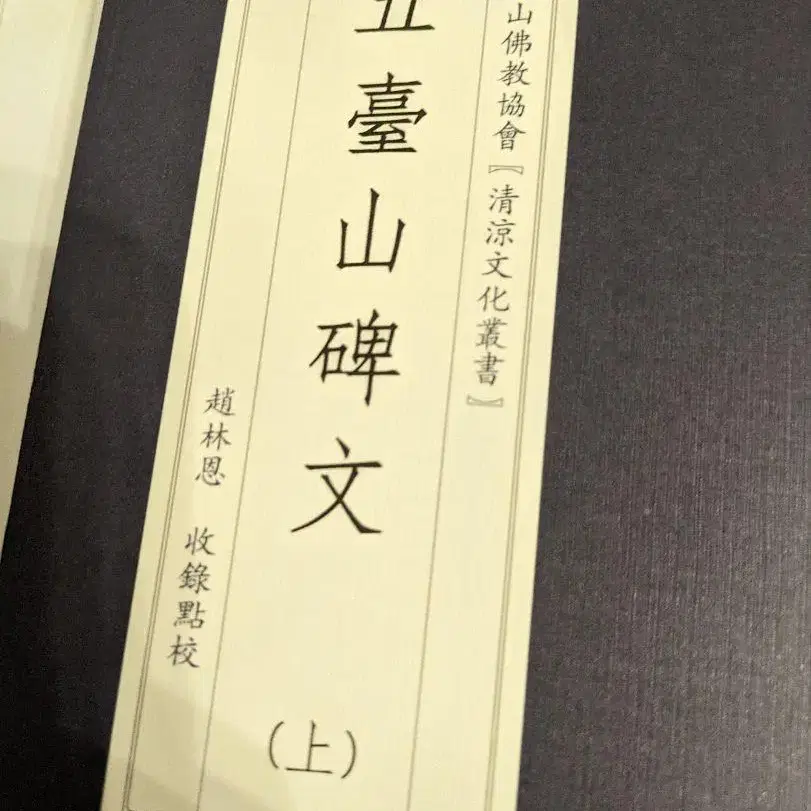 山佛教協會【清涼文化叢書】
五臺山碑文
(上)
趙林恩 收錄點校